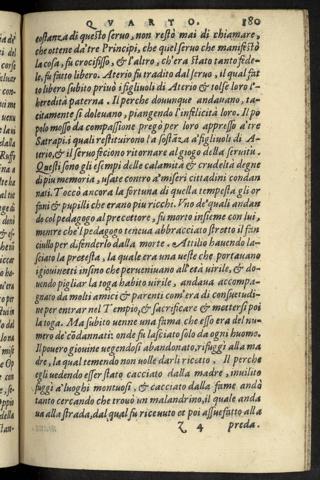 QVARTO. 180
costanza di questo seruo, non restò mai di chiamare,
che ottene da'tre Principi, che quel seruo che manifestò
la cosa, fu crocifisso, & l'altro, ch'era stato tanto fede-
le, fu fatto libero. Aterio fu tradito dal seruo, il qual fat
to libero subito priuò i figliuoli di Aterio & tolse loro l'-
heredità paterna. Il perche douunque andauano, ta-
citamente si doleuano, piangendo l'infilicità loro. Il po
polo mosso da compassione pregò per loro appresso a'tre
Satrapi i quali restituirono la sostãza a'figliuoli di A-
terio, & il seruo feciono ritornare al giogo della seruitù.
Questi sono gli esempi delle calamità & crudeltà degne
di piu memoria, usate contro a' miseri cittadini condan
nati. Toccò ancora la fortuna di quella tempesta gli or
fani & pupilli che erano piu ricchi. Vno de'quali andan
do col pedagogo al precettore, fu morto insieme con lui,
mentre che'l pedagogo teneua abbracciato stretto il fan
ciullo per difenderlo dalla morte. Attilio hauendo la-
sciato la pretesta, la quale era una ueste che portauano
i giouinetti insino che perueniuano all'età uirile, & do-
uendo pigliar la toga habito uirile, andaua accompa-
gnato da molti amici & parenti com'era di consuetudi-
ne per entrar nel Tempio, & sacrificare & mettersi poi
la toga. Ma subito uenne una fama che esso era del nu-
mero de'cõdannati: onde fu lasciato solo da ogni huomo.
Il pouero giouine uegendosi abandonato, rifuggì alla ma
dre, la qual temendo non uolle darli ricato. Il perche
egli uedendo esser stato cacciato dalla madre, inuilito
fuggì a'luoghi montuosi, & cacciato dalla fame andò
tanto cercando che trouò un malandrino, il quale anda
ua alla strada, dal qual fu riceuuto et poi assuefatto alla
Z 4 preda.